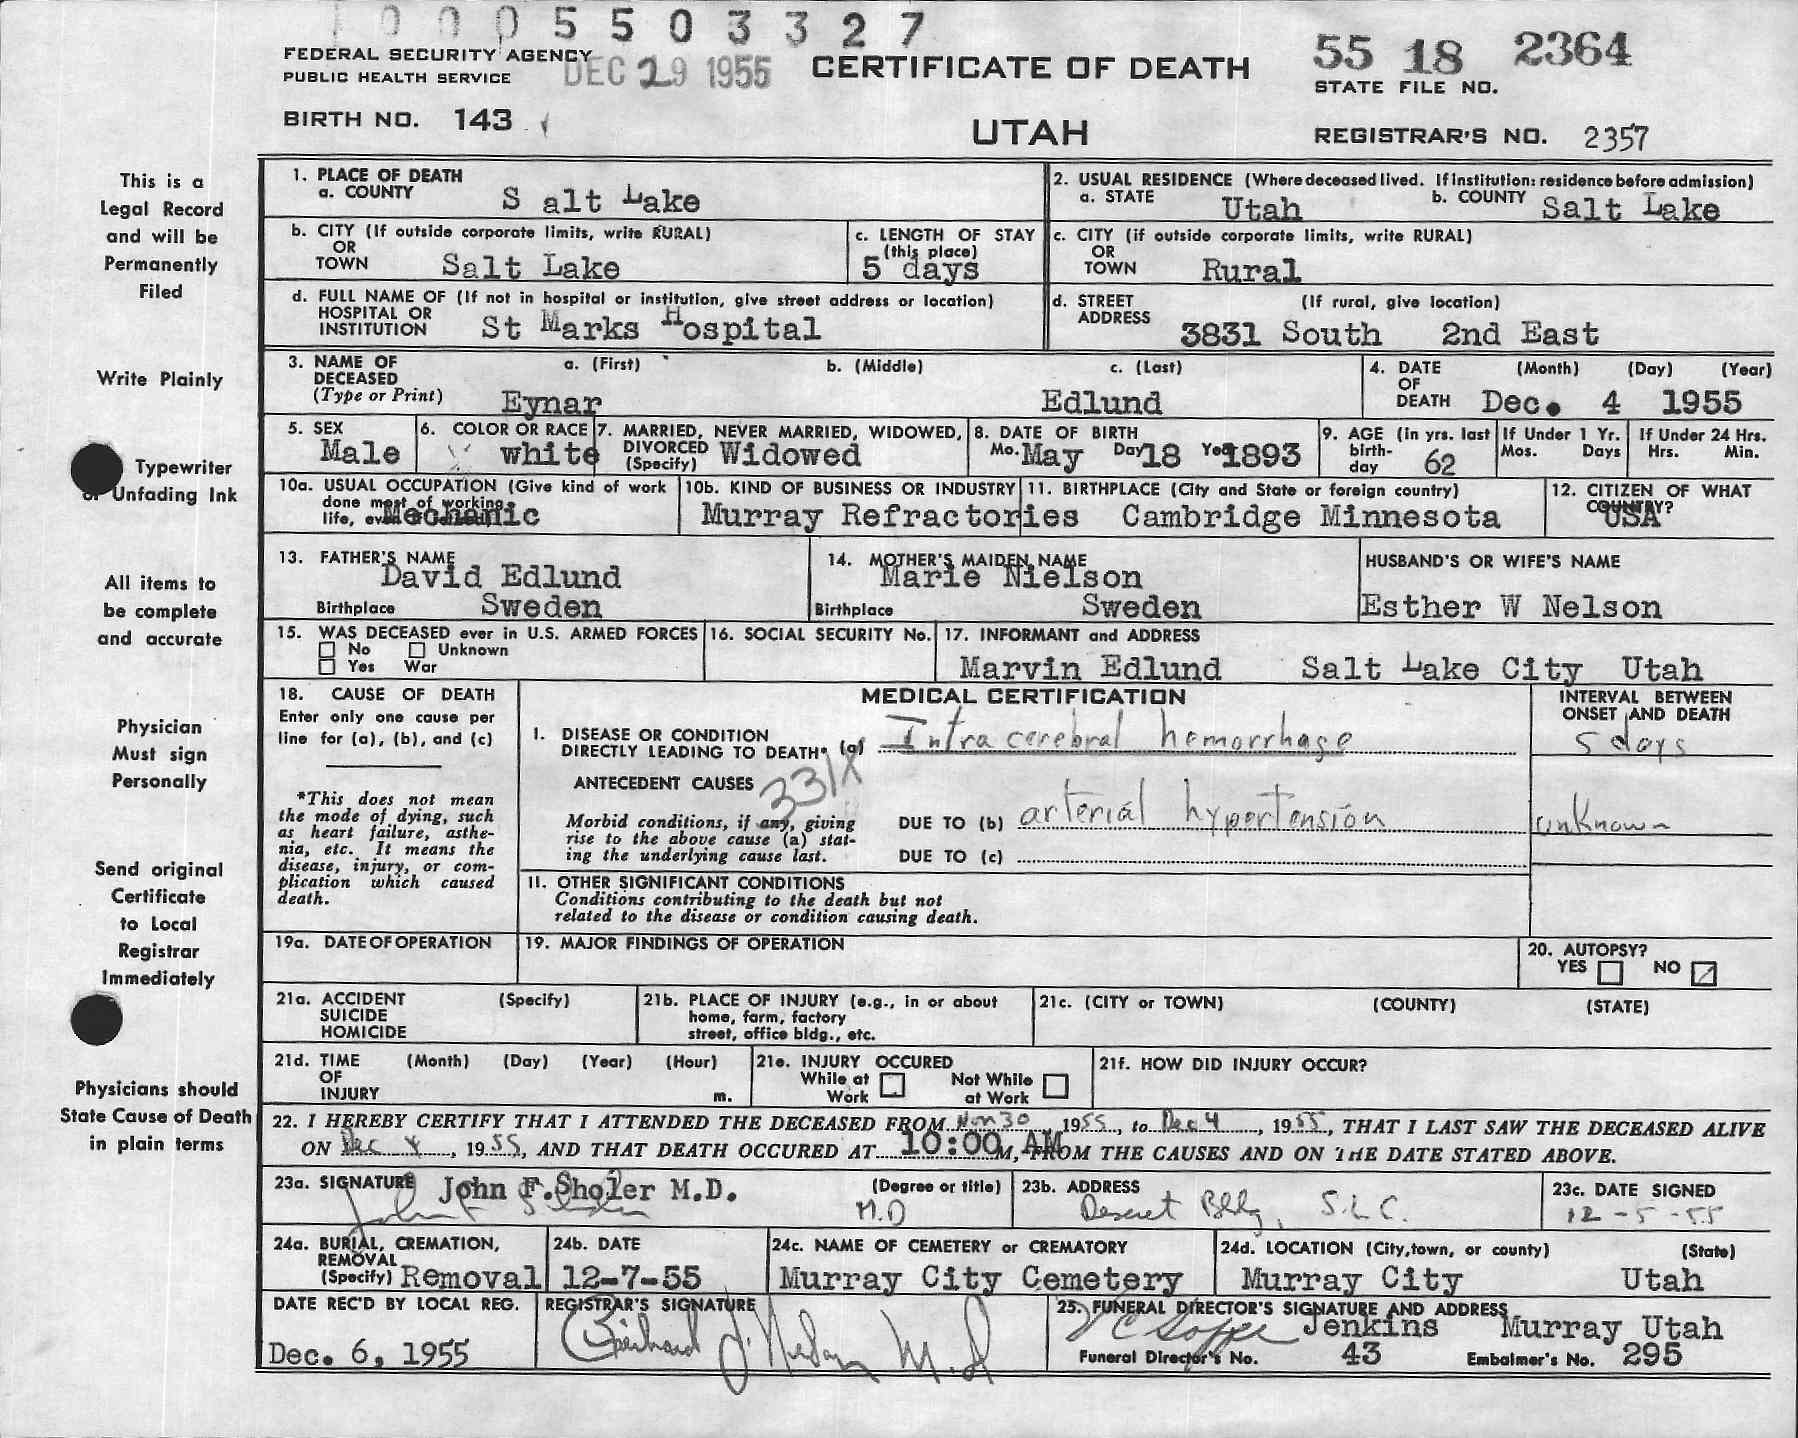 0005503327
FEDERAL SECURITY AGENCY
PUBLIC HEALTH SERVICE
DEC 29 1955
CERTIFICATE OF DEATH
55 18 2364
STATE FILE NO.
BIRTH NO. 143
UTAH
REGISTRAR'S NO. 2357
This is a
Legal Record
and will be
Permanently
Filed
Write Plainly
Typewriter
or Unfading Ink
All items to
be complete
and accurate
Physician
Must sign
Personally
Send original
Certificate
to Local
Registrar
Immediately
Physicians should
State Cause of Death
in plain terms
1. PLACE OF DEATH
a. COUNTY S alt Lake
2. USUAL RESIDENCE (Where deceased lived. If institution: residence before admission)
a. STATE Utah b. COUNTY Salt Lake
b. CITY (If outside corporate limits, write RURAL)
OR
TOWN Salt Lake
c. LENGTH OF STAY
(this place)
5 days
c. CITY (if outside corporate limits, write RURAL)
OR
TOWN Rural
d. FULL NAME OF (If not in hospital or institution, give street address or location)
HOSPITAL OR
INSTITUTION St Marks Hospital
d. STREET (If rural, give location)
ADDRESS
3831 South 2nd East
3. NAME OF a. (First) b. (Middle) c. (Last)
DECEASED
(Type or Print) Eynar Edlund
4. DATE (Month) (Day) (Year)
OF
DEATH Dec. 4 1955
5. SEX
Male
6. COLOR OR RACE
white
7. MARRIED, NEVER MARRIED, WIDOWED,
DIVORCED
(Specify) Widowed
8. DATE OF BIRTH
Mo. May Day 18 Year 1893
9. AGE (in yrs. last
birth-
day 62
If Under 1 Yr.
Mos. Days
If Under 24 Hrs.
Hrs. Min.
10a. USUAL OCCUPATION (Give kind of work
done most of working
life, even if retired)
Mechanic
10b. KIND OF BUSINESS OR INDUSTRY
Murray Refractories
11. BIRTHPLACE (City and State or foreign country)
Cambridge Minnesota
12. CITIZEN OF WHAT
COUNTRY?
USA
13. FATHER'S NAME
David Edlund
Birthplace Sweden
14. MOTHER'S MAIDEN NAME
Marie Nielson
Birthplace Sweden
HUSBAND'S OR WIFE'S NAME
Esther W Nelson
15. WAS DECEASED ever in U.S. ARMED FORCES
No Unknown
Yes War
16. SOCIAL SECURITY No.
17. INFORMANT and ADDRESS
Marvin Edlund Salt Lake City Utah
18. CAUSE OF DEATH
Enter only one cause per
line for (a), (b), and (c)
*This does not mean
the mode of dying, such
as heart failure, asthe-
nia, etc. It means the
disease, injury, or com-
plication which caused
death.
MEDICAL CERTIFICATION
INTERVAL BETWEEN
ONSET AND DEATH
I. DISEASE OR CONDITION
DIRECTLY LEADING TO DEATH* (a) Intra cerebral hemorrhage
5 days
ANTECEDENT CAUSES
331X
Morbid conditions, if any, giving
rise to the above cause (a) stat-
ing the underlying cause last.
DUE TO (b) arterial hypertension
unknown
DUE TO (c)
II. OTHER SIGNIFICANT CONDITIONS
Conditions contributing to the death but not
related to the disease or condition causing death.
19a. DATE OF OPERATION
19. MAJOR FINDINGS OF OPERATION
20. AUTOPSY?
YES NO
21a. ACCIDENT (Specify)
SUICIDE
HOMICIDE
21b. PLACE OF INJURY (e.g., in or about
home, farm, factory
street, office bldg., etc.
21c. (CITY or TOWN) (COUNTY) (STATE)
21d. TIME (Month) (Day) (Year) (Hour)
OF
INJURY m.
21e. INJURY OCCURED
While at Work Not While at Work
21f. HOW DID INJURY OCCUR?
22. I HEREBY CERTIFY THAT I ATTENDED THE DECEASED FROM Nov 30, 1955, to Dec 4, 1955, THAT I LAST SAW THE DECEASED ALIVE
ON Dec 4, 1955, AND THAT DEATH OCCURED AT 10:00 AM M, FROM THE CAUSES AND ON THE DATE STATED ABOVE.
23a. SIGNATURE John F. Sholer M.D. (Degree or title)
M.D
23b. ADDRESS
Deseret Bldg, S.L.C.
23c. DATE SIGNED
12-5-55
24a. BURIAL, CREMATION,
REMOVAL
(Specify) Removal
24b. DATE
12-7-55
24c. NAME OF CEMETERY or CREMATORY
Murray City Cemetery
24d. LOCATION (City, town, or county) (State)
Murray City Utah
DATE REC'D BY LOCAL REG.
Dec. 6, 1955
REGISTRAR'S SIGNATURE
25. FUNERAL DIRECTOR'S SIGNATURE AND ADDRESS
Jenkins Murray Utah
Funeral Director's No. 43 Embalmer's No. 295